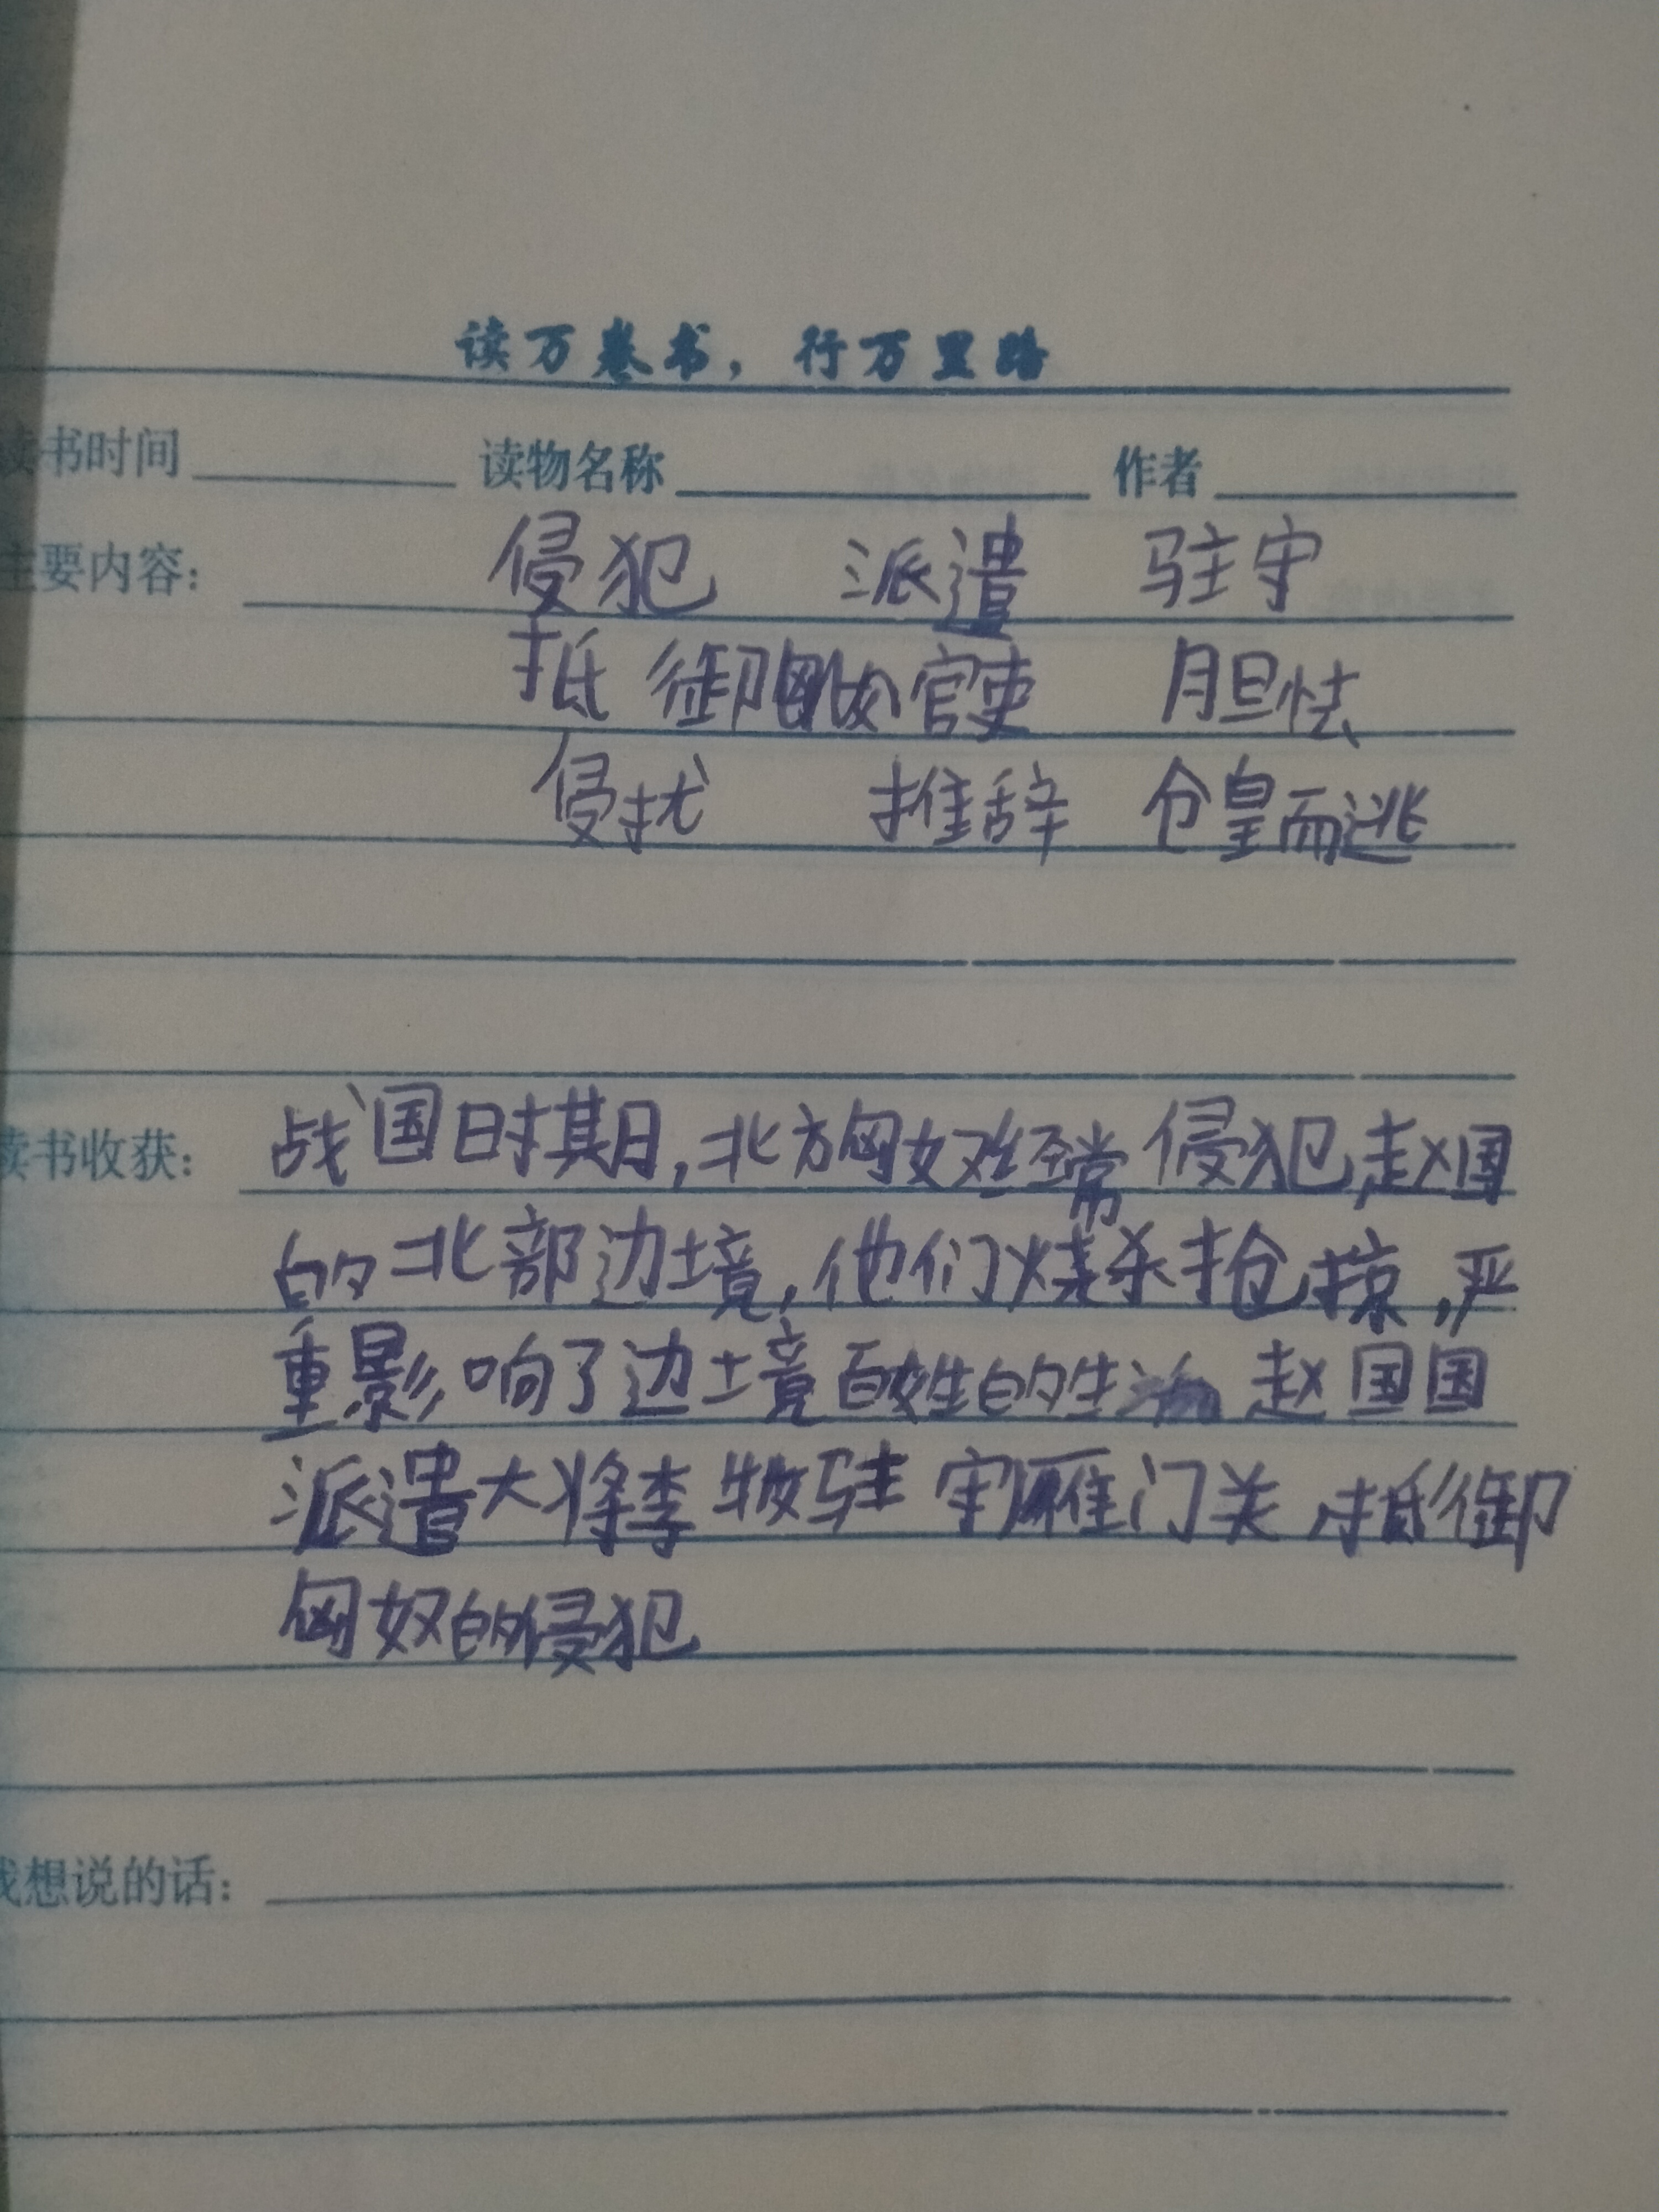 读万卷书，行万里路
读书时间 读物名称 作者
主要内容： 侵犯 派遣 驻守
抵御 官吏 胆怯
侵扰 推辞 仓皇而逃
读书收获： 战国时期，北方匈奴经常侵犯赵国
的北部边境，他们烧杀抢掠，严
重影响了边境百姓的生活 赵国国
派遣大将李牧驻守雁门关，抵御
匈奴的侵犯
我想说的话：